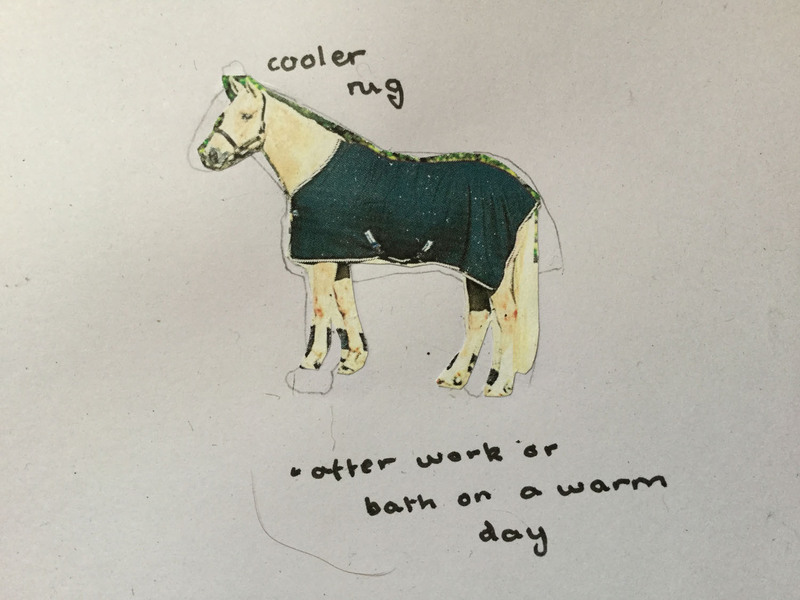 cooler
rug
• after work or
bath on a warm
day